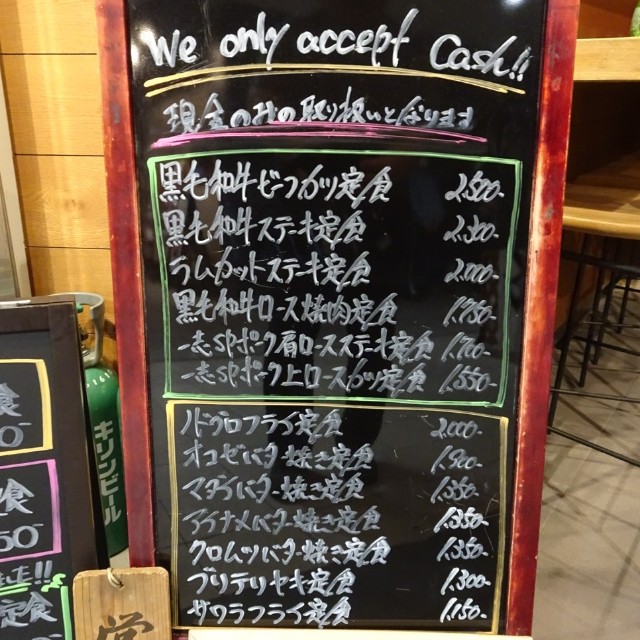 We only accept Cash!!
現金のみの取り扱いとなります
黒毛和牛ビーフカツ定食 2.500-
黒毛和牛ステーキ定食 2.300-
ラムカットステーキ定食 2.000-
黒毛和牛ロース焼肉定食 1.750-
一志SPポーク肩ロースステーキ定食 1.700-
一志SPポーク上ロースカツ定食 1.550-
ノドグロフライ定食 2.000-
オコゼバター焼き定食 1.500-
マダイバター焼き定食 1.350-
アイナメバター焼き定食 1.350-
クロムツバター焼き定食 1.350-
ブリテリヤキ定食 1.300-
サワラフライ定食 1.150-
キリンビール
食
0-
食
50-
ました!!
定食
営